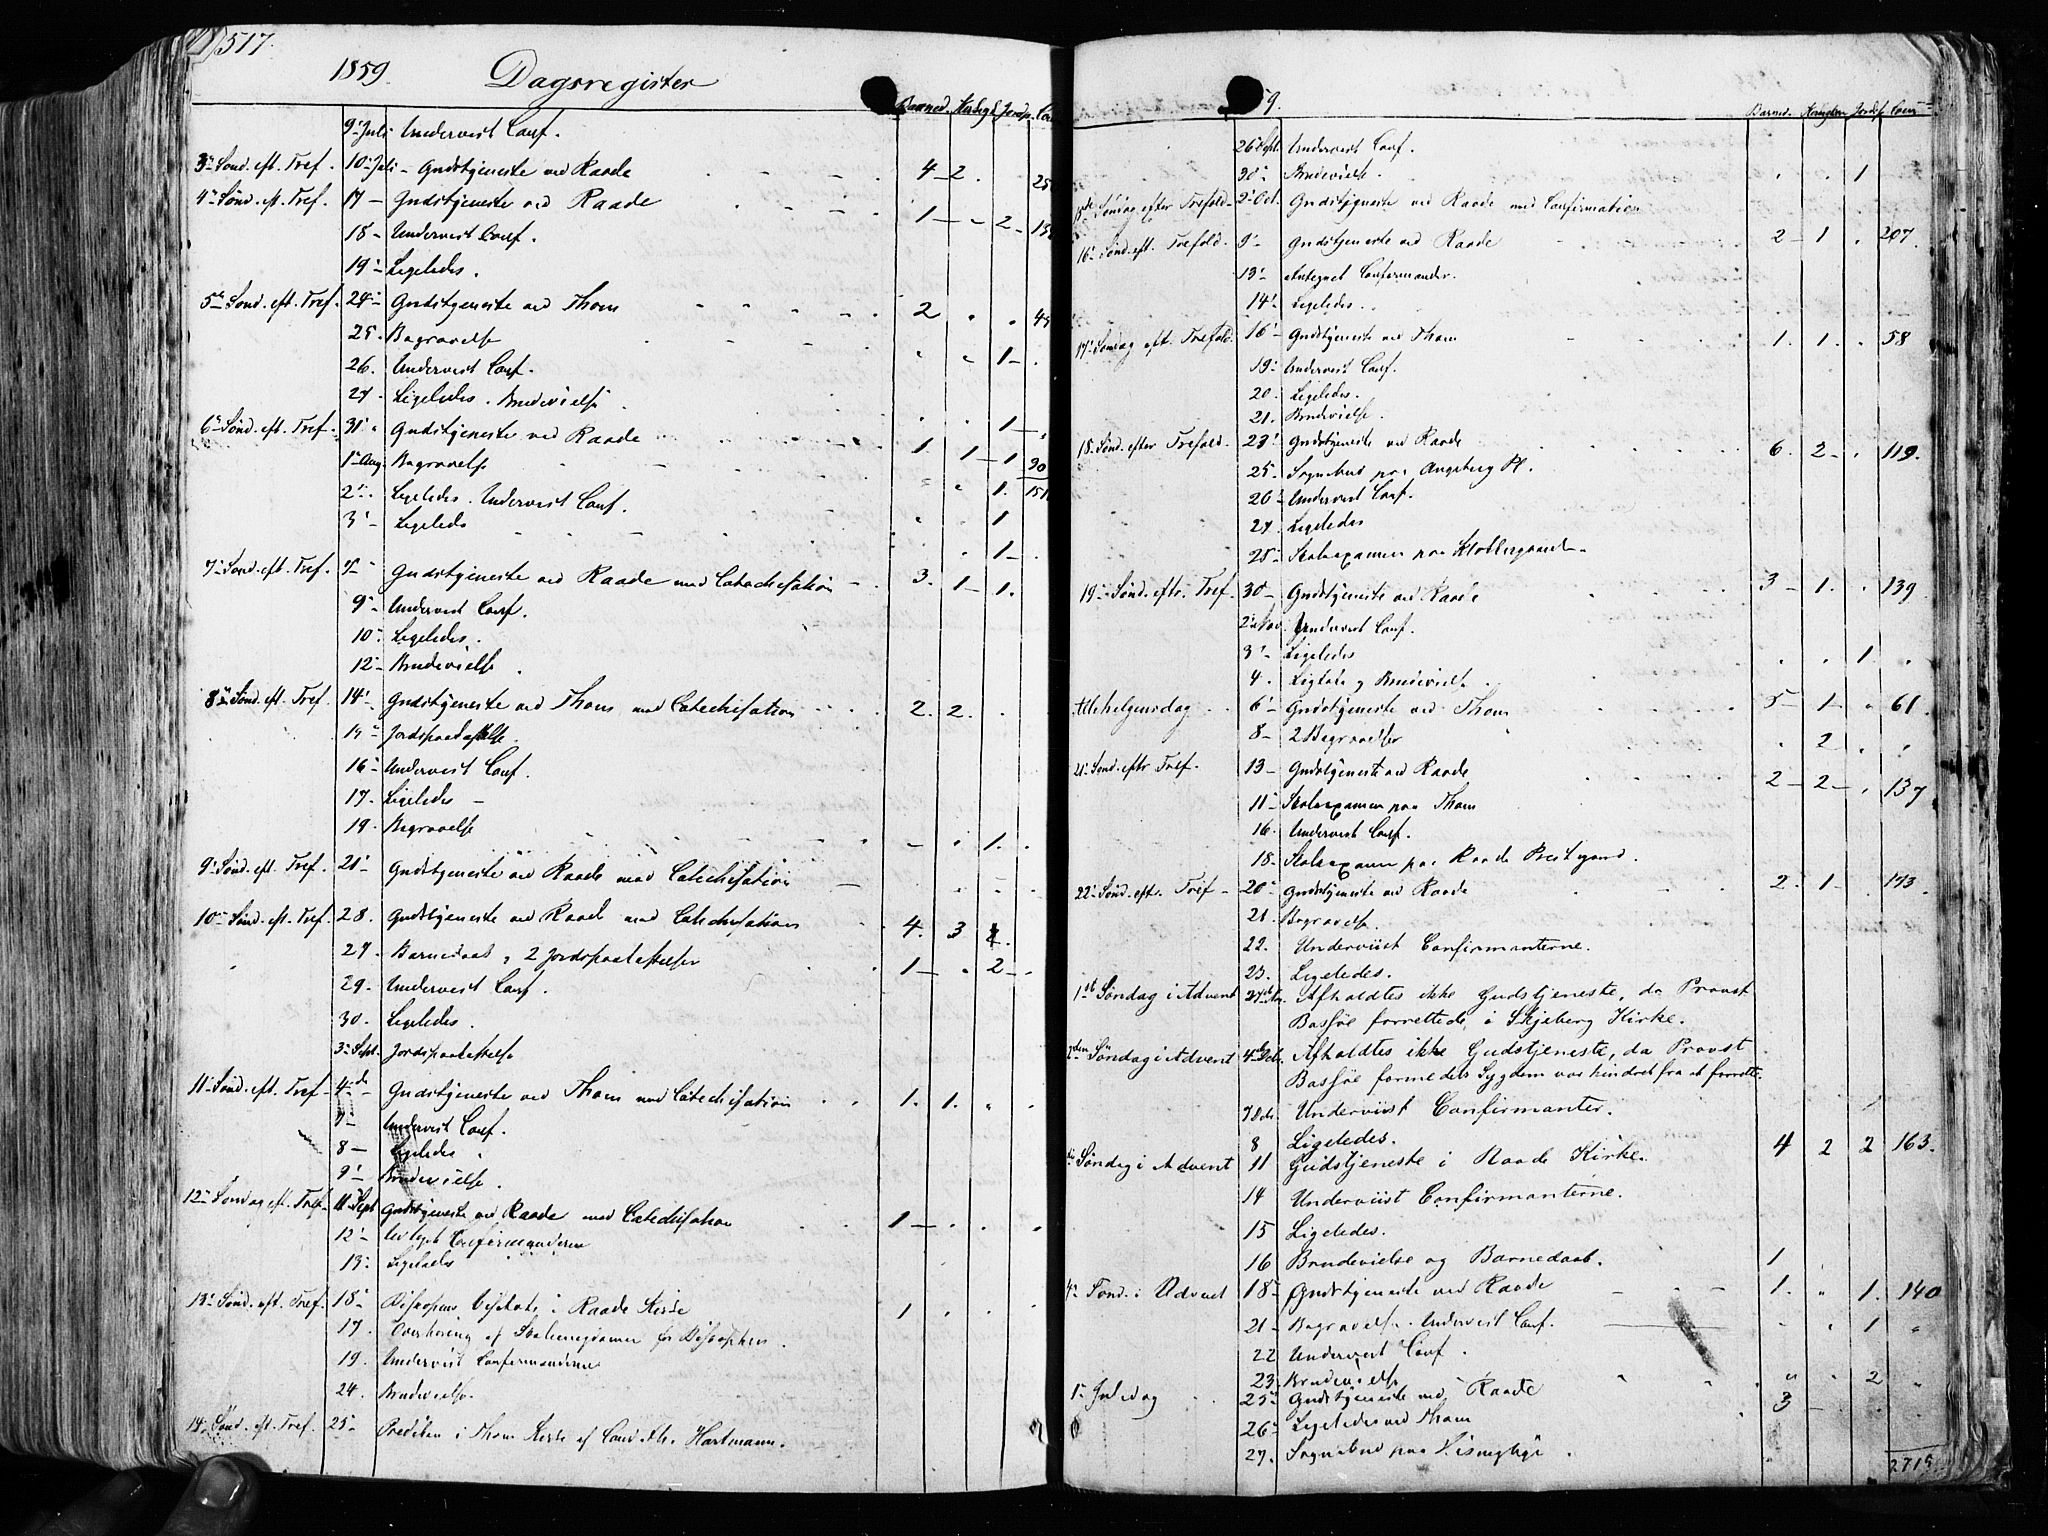 517.
1859. Dagsregister
Barned. Jordp.
9 Juli Undervist Conf.
3 Sønd. eft. Tref. 10 Juli - Gudstjeneste ved Raade 4 - 2
4 Sønd. eft. Tref. 17 - Gudstjeneste ved Raade 1 - - 2 -
18 - Undervist Conf.
19 - Ligeledes.
5 Sønd. eft. Tref. 24 - Gudstjeneste ved Thom 2 . .
25. Begravelse " " 1 - .
26. Undervist Conf.
27 Ligeledes. Brudevielse
6 Sønd. eft. Tref. 31 Gudstjeneste ved Raade 1 -
1 Aug. Begravelse 1. 1 - 1 90
2 - Ligeledes. Undervist Conf. " " 1. 151
3 - Ligeledes 1
7 Sønd. eft. Tref. 7 - Gudstjeneste ved Raade med Catechisation 3. 1 - 1.
9 - Undervist Conf.
10 - Ligeledes.
12 - Brudevielse.
8 Sønd. eft. Tref. 14 - Gudstjeneste ved Thom med Catechisation 2. 2.
Jordspaakastelse.
16 - Undervist Conf.
17. Ligeledes -
19. Begravelse - . 1.
9 Sønd. eft. Tref. 21 Gudstjeneste ved Raade med Catechisation
10 Sønd. eft. Tref. 28. Gudstjeneste ved Raade med Catechisation 4. 3
27. Barnedaab, 2 Jordspaakastelser 1 - " 2 -
29. Undervist Conf.
30. Ligeledes.
3 Sept. Jordspaakastelse
11 Sønd. eft. Tref - 4 - Gudstjeneste ved Thom med Catechisation 1. 1. "
7 - Undervist Conf.
8 - Ligeledes.
9 - Brudevielse.
12 Søndag eft. Tref - 11 Sept Gudstjeneste ved Raade med Catechisation 1 -
12 - Confirmanderne
13 - Ligeledes
13 Sønd. eft. Tref. 18 - Biskopens Visitats i Raade Kirke 1
17. Overhøring af Skoleungdommen for Biskoppen.
19. Undervist Confirmanderne
24. Brudevielse.
14 Sønd. eft. Tref. 25 - Prediken i Thom Kirke af Cand. th. Hartmann.
9.
Barned. Jordsp.
26 Sept. Undervist Conf.
30 - Brudevielse. " " 1
15de Søndag efter Trefold - 2 Oct. Gudstjeneste ved Raade med Confirmation
16 Sønd. eft. Trefold. 9 - Gudstjeneste ved Raade 2 - 1 . 207.
13 - Antegnet Confirmander.
14 - Ligeledes.
17 Søndag eft. Trefold. 16 - Gudstjeneste ved Thom 1. 1. . 58
19 - Undervist Conf.
20. Ligeledes.
21. Brudevielse.
18 Sønd. efter Trefold. 23 Gudstjeneste ved Raade 6. 2 - . 119.
25. Sognebud paa Augeberg Pl.
26 - Undervist Conf.
27. Ligeledes
28 - Skoleexamen paa Klobbergaard -
19 Sønd. eftr. Tref - 30 - Gudstjeneste ved Raade 3 - 1. . 139
2 Nov. Undervist Conf.
3 - Ligeledes " " 1 .
4. Ligeled. og Brudevielse.
Allehelgensdag 6 - Gudstjeneste ved Thom 5 - 1 - " 61.
8 - 2 Begravelser " 2 . "
21 Sønd. eftr Tref. 13 - Gudstjeneste ved Raade 2 - 2 - . 137
11 - Skoleexamen paa Thom
16. Undervist Conf.
18 - Skoleexamen paa Raade Prestegaard.
22 Sønd. eft. Tref - 20 - Gudstjeneste ved Raade 2. 1 - 173.
21. Begravelse.
22. Underviist Confirmanterne.
23. Ligeledes.
1ste Søndag i Advent 27de Nov. Afholdtes ikke Gudstjeneste, da Provst
Bassøe forrettede i Skjeberg Kirke.
2den Søndag i Advent 4de Dcbr. Afholdtes ikke Gudstjeneste, da Provst
Bassøe formedelst Sygdom var hindret fra at forrette.
7 Dcb. Underviist Confirmanter.
8 Ligeledes.
Søndag i Advent 11 Gudstjeneste i Raade Kirke. 4 2 2 163.
14 Underviist Confirmanterne.
15 Ligeledes.
16 Brudevielse og Barnedaab. 1
4 Sønd. i Advent 18 - Gudstjeneste ved Raade 1. " 1. 140
21 - Begravelse. Undervist Conf. " " 1 "
22 Undervist Conf.
23. Brudevielse " " 2 "
1 Juledag 25 - Gudstjeneste ved Raade 3 -
26 - Ligeledes ved Thom
27. Sognebud paa
2715